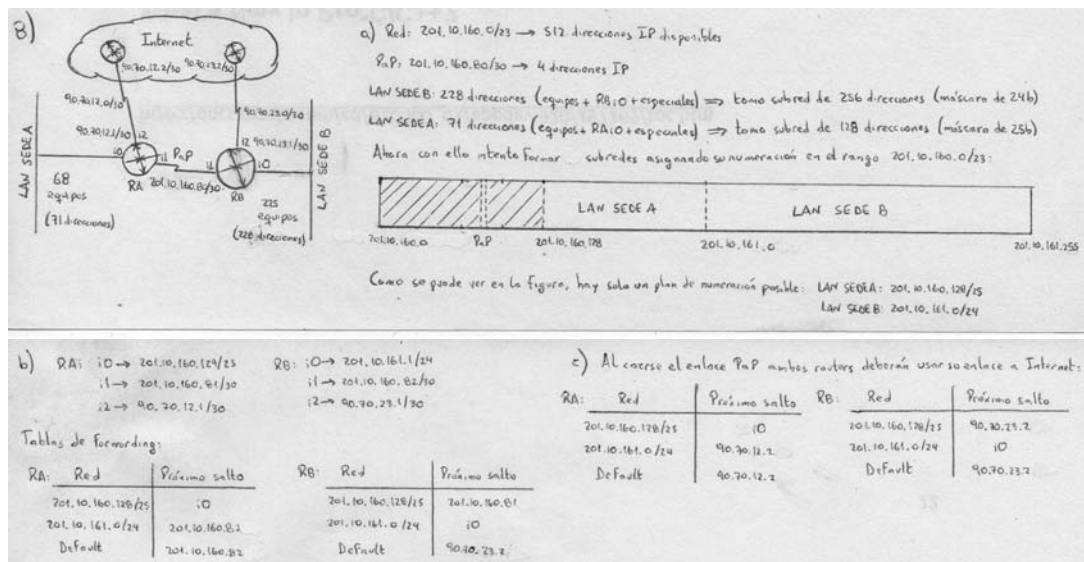 8)
Internet
90.70.12.2/30
90.70.23.2/30
90.70.12.0/30
90.70.23.0/30
90.70.12.1/30 i2
i2 90.70.23.1/30
LAN SEDE A
i0
i1 PaP
i1
i0
LAN SEDE B
RA
201.10.160.80/30
RB
68
equipos
(71 direcciones)
225
equipos
(228 direcciones)
a) Red: 201.10.160.0/23 → 512 direcciones IP disponibles
PaP: 201.10.160.80/30 → 4 direcciones IP
LAN SEDE B: 228 direcciones (equipos + RBi0 + especiales) ⟹ tomo subred de 256 direcciones (máscara de 24b)
LAN SEDE A: 71 direcciones (equipos + RAi0 + especiales) ⟹ tomo subred de 128 direcciones (máscara de 25b)
Ahora con ello intento formar subredes asignando su numeración en el rango 201.10.160.0/23:
LAN SEDE A
LAN SEDE B
201.10.160.0
PaP
201.10.160.128
201.10.161.0
201.10.161.255
Como se puede ver en la figura, hay solo un plan de numeración posible: LAN SEDE A: 201.10.160.128/25
LAN SEDE B: 201.10.161.0/24
b) RA: i0 → 201.10.160.129/25
i1 → 201.10.160.81/30
i2 → 90.70.12.1/30
RB: i0 → 201.10.161.1/24
i1 → 201.10.160.82/30
i2 → 90.70.23.1/30
Tablas de forwarding:
RA: Red Próximo salto
201.10.160.128/25 i0
201.10.161.0/24 201.10.160.82
Default 201.10.160.82
RB: Red Próximo salto
201.10.160.128/25 201.10.160.81
201.10.161.0/24 i0
Default 90.70.23.2
c) Al caerse el enlace PaP ambos routers deberán usar su enlace a Internet:
RA: Red Próximo salto
201.10.160.128/25 i0
201.10.161.0/24 90.70.12.2
Default 90.70.12.2
RB: Red Próximo salto
201.10.160.128/25 90.70.23.2
201.10.161.0/24 i0
Default 90.70.23.2